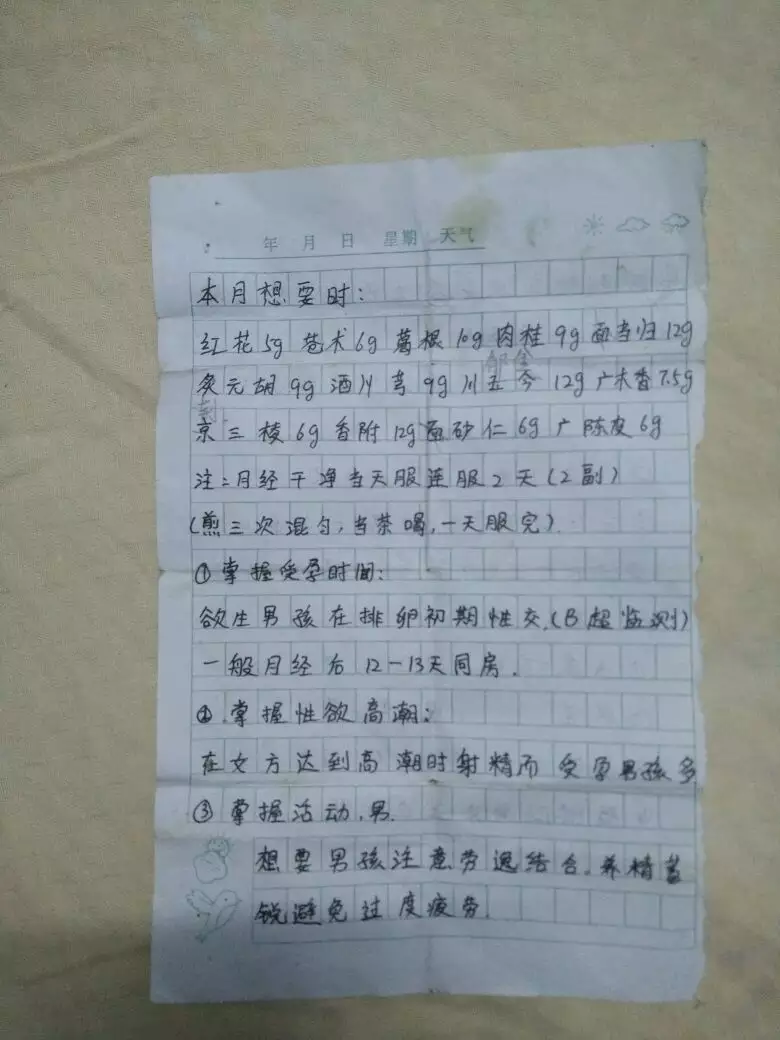 年 月 日 星期 天气
本月想要时：
红花5g 苍术6g 葛根10g 肉桂9g 面当归12g
炙元胡9g 酒川芎9g 川玉今12g 广木香7.5g
郁金
京三棱6g 香附12g 面砂仁6g 广陈皮6g
注：月经干净当天服连服2天（2副）
（煎三次混匀，当茶喝，一天服完）
①掌握受孕时间：
欲生男孩在排卵初期性交.（B超监测）
一般月经后12－13天同房.
②.掌握性欲高潮：
在女方达到高潮时射精而受孕男孩多
③掌握活动.男.
想要男孩注意劳逸结合.养精蓄
锐避免过度疲劳.